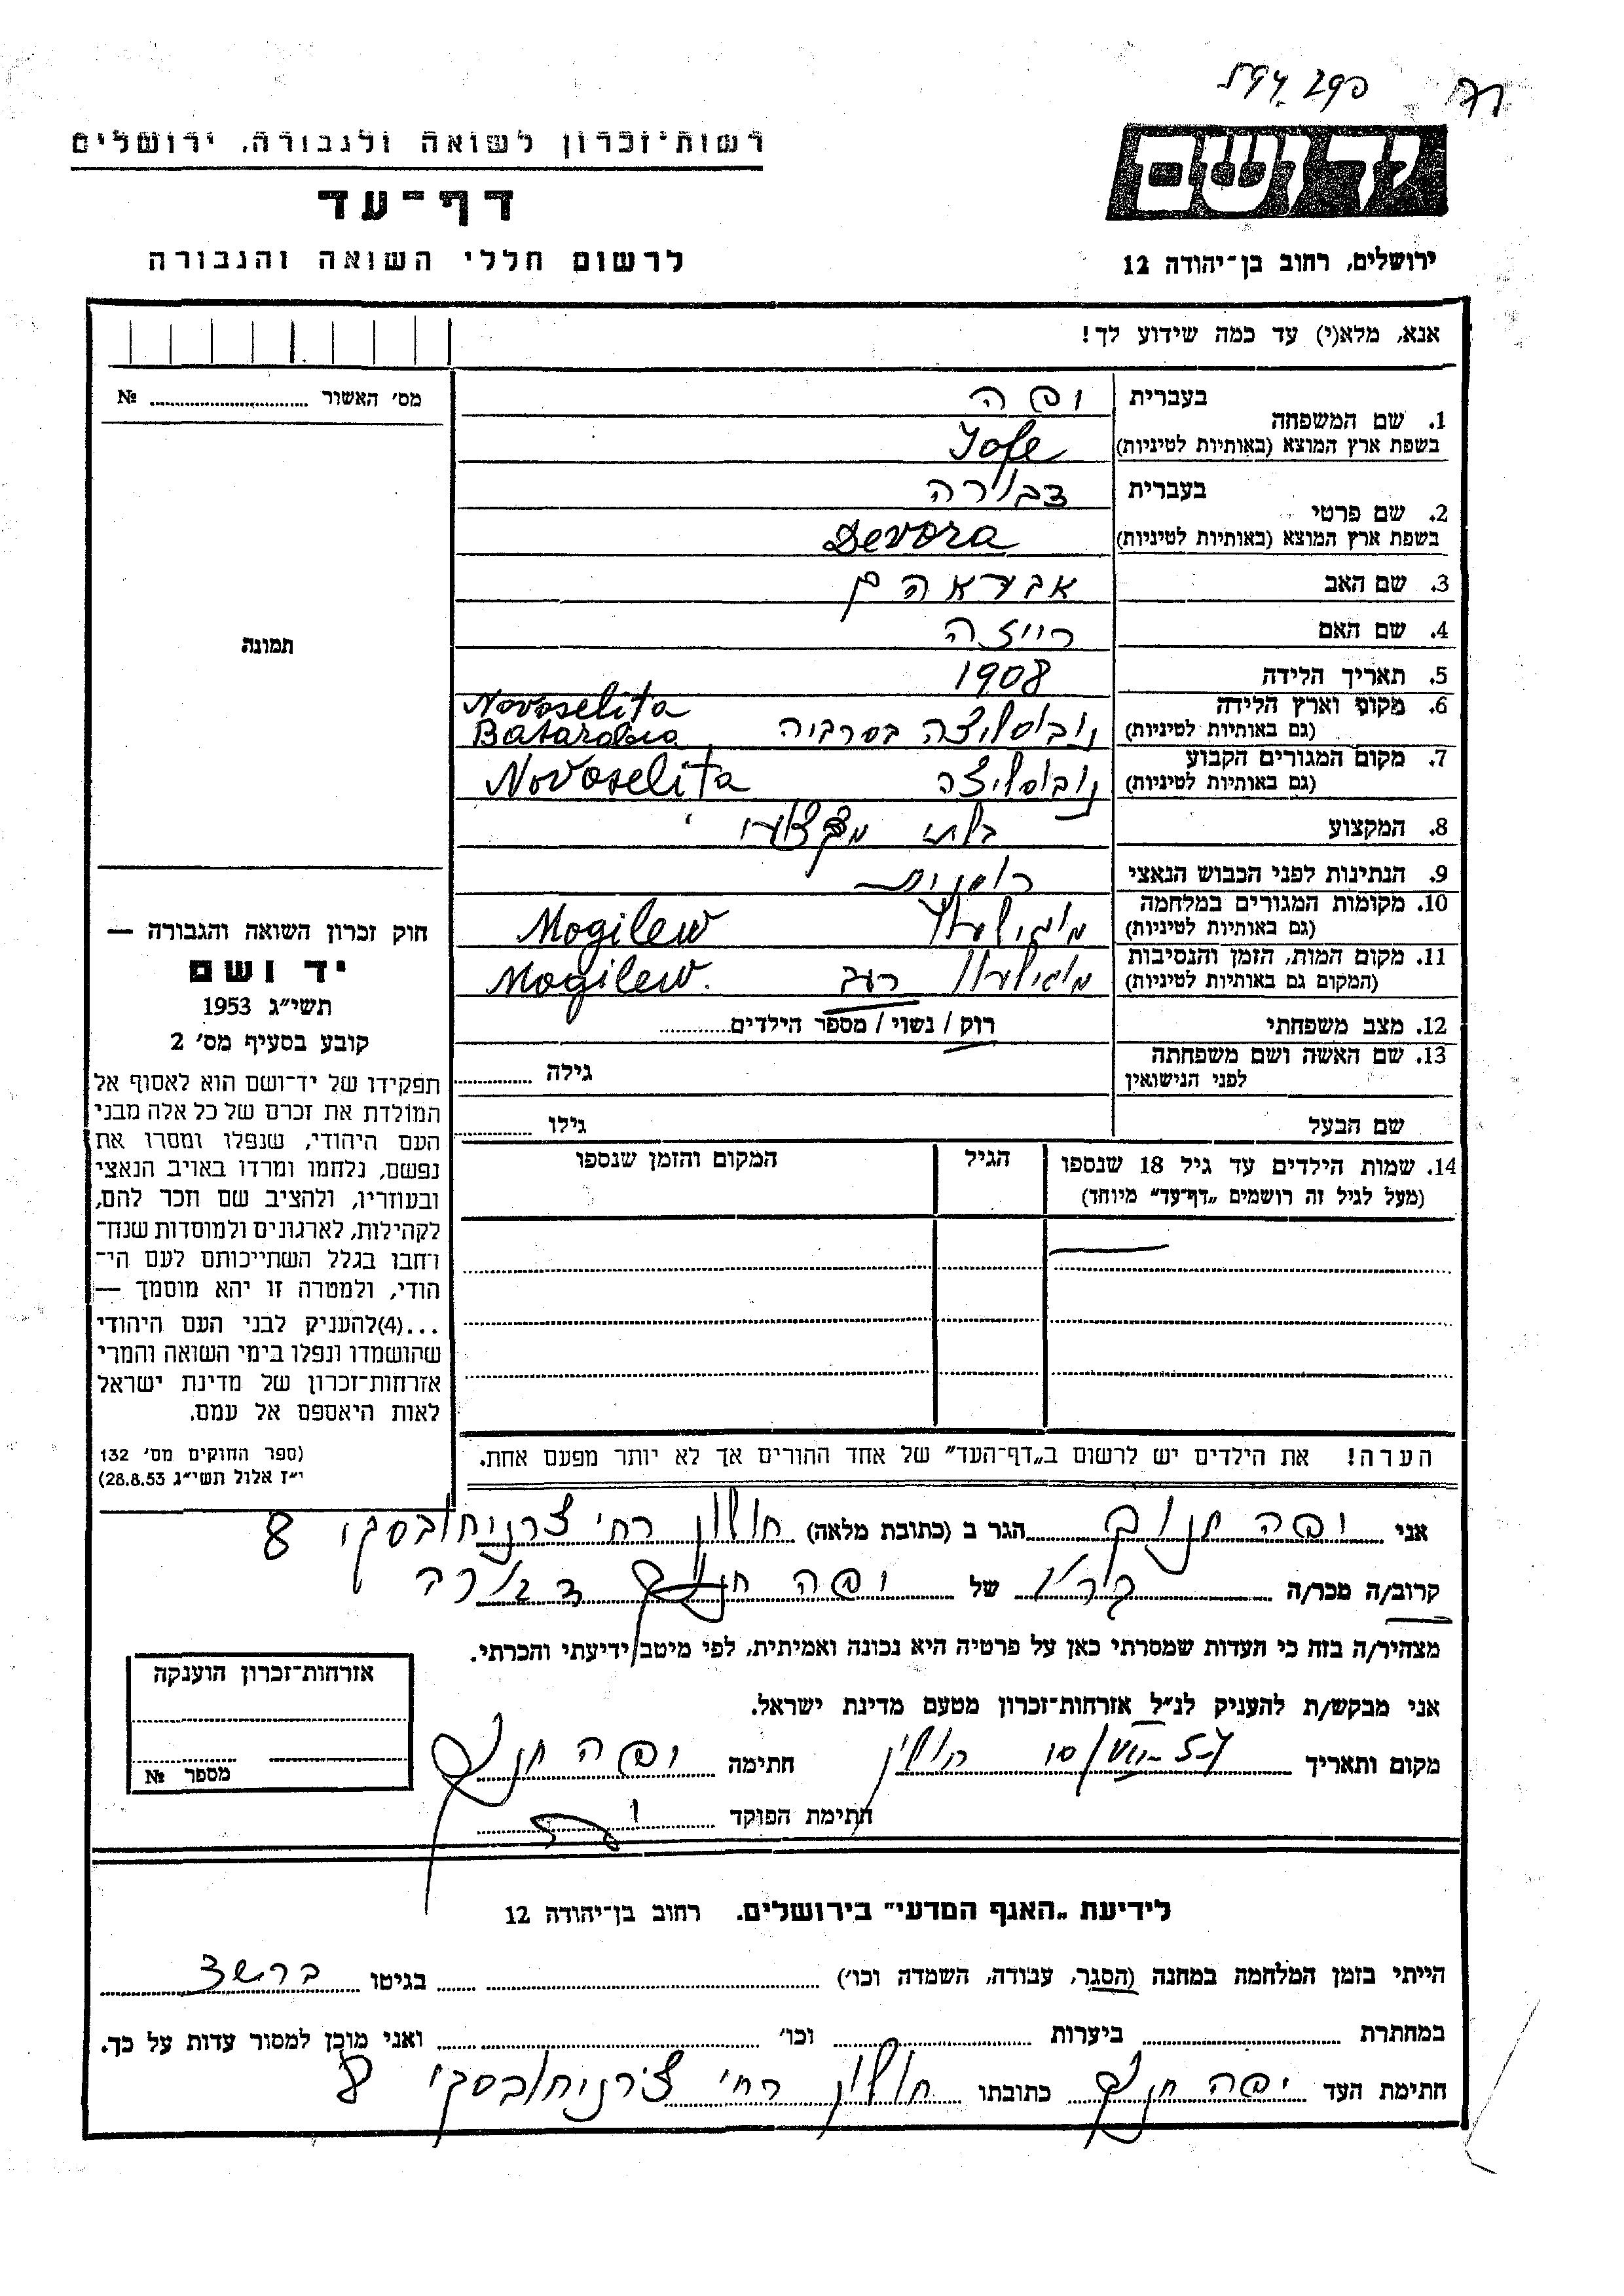 יד ושם
ירושלים, רחוב בן־יהודה 12
רשות־זכרון לשואה ולגבורה, ירושלים
דף־עד
לרשום חללי השואה והגבורה
אנא, מלא(י) עד כמה שידוע לך!
1. שם המשפחה
בעברית יפה
בשפת ארץ המוצא (באותיות לטיניות) Yofe
2. שם פרטי
בעברית דבורה
בשפת ארץ המוצא (באותיות לטיניות) Devora
3. שם האב אבראהם
4. שם האם רייזה
5. תאריך הלידה 1908
6. מקום וארץ הלידה נובוסליצה בסרביה Novoselita
(גם באותיות לטיניות) Basarabia
7. מקום המגורים הקבוע נובוסליצה Novoselita
(גם באותיות לטיניות)
8. המקצוע בלתי מקצועי
9. הנתינות לפני הכבוש הנאצי רומנית
10. מקומות המגורים במלחמה מוגילעוו Mogilew
(גם באותיות לטיניות)
11. מקום המות, הזמן והנסיבות מוגילעוו רעב Mogilew.
(המקום גם באותיות לטיניות)
12. מצב משפחתי רוק / נשוי / מספר הילדים
13. שם האשה ושם משפחתה
לפני הנישואין גילה
שם הבעל גילו
14. שמות הילדים עד גיל 18 שנספו הגיל המקום והזמן שנספו
(מעל לגיל זה רושמים „דף־עד" מיוחד)
הערה! את הילדים יש לרשום ב„דף־העד" של אחד ההורים אך לא יותר מפעם אחת.
מס׳ האשור №
תמונה
חוק זכרון השואה והגבורה —
יד ושם
תשי״ג 1953
קובע בסעיף מס׳ 2
תפקידו של יד־ושם הוא לאסוף אל
המולדת את זכרם של כל אלה מבני
העם היהודי, שנפלו ומסרו את
נפשם, נלחמו ומרדו באויב הנאצי
ובעוזריו, ולהציב שם וזכר להם,
לקהילות, לארגונים ולמוסדות שנח־
רחבו בגלל השתייכותם לעם הי־
הודי, ולמטרה זו יהא מוסמך —
...(4)להעניק לבני העם היהודי
שהושמדו ונפלו בימי השואה והמרי
אזרחות־זכרון של מדינת ישראל
לאות היאספם אל עמם.
(ספר החוקים מס׳ 132
י״ז אלול תשי״ג 28.8.53)
אני יפה חנוך הגר ב (כתובת מלאה) חולון רח׳ צרניחובסקי 8
קרוב/ה מכר/ה של יפה דבורה
מצהיר/ה בזה כי העדות שמסרתי כאן על פרטיה היא נכונה ואמיתית, לפי מיטב ידיעתי והכרתי.
אני מבקש/ת להעניק לנ״ל אזרחות־זכרון מטעם מדינת ישראל.
מקום ותאריך חולון 10/ חתימה יפה חנוך
חתימת הפוקד
אזרחות־זכרון הוענקה
מספר №
לידיעת „האגף המדעי" בירושלים. רחוב בן־יהודה 12
הייתי בזמן המלחמה במחנה (הסגר, עבודה, השמדה וכו׳) בגיטו ברשד
במחתרת ביערות וכו׳ ואני מוכן למסור עדות על כך.
חתימת העד יפה חנוך כתובתו חולון רח׳ צ׳רניחובסקי 8